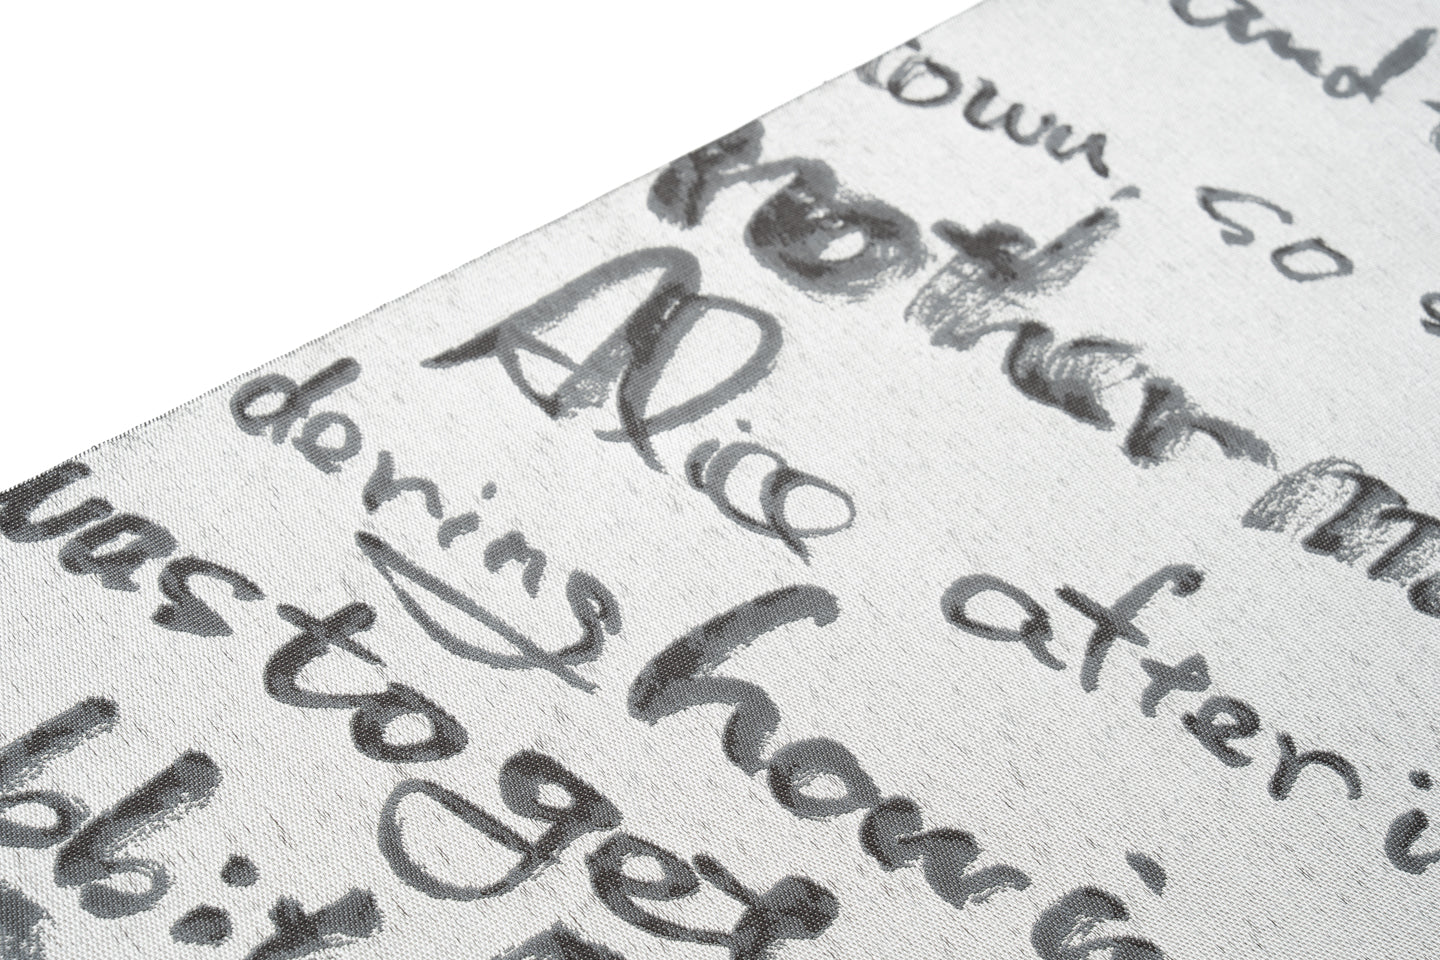 and
down, so
nother
Alice after
doring how
was to get
bbit